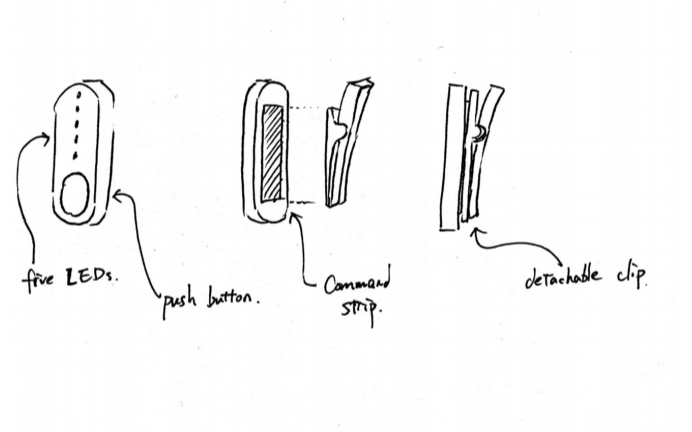 five LEDs.
push button.
Command
strip.
detachable clip.